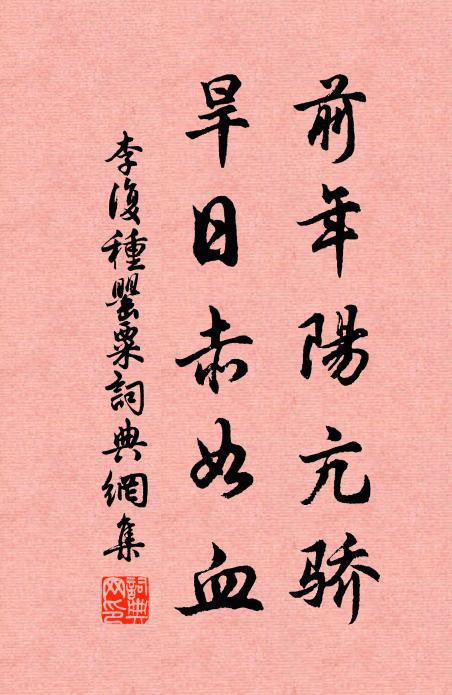 前年陽亢骄
旱日赤如血
李復種罌粟詞典網集
詞典網印